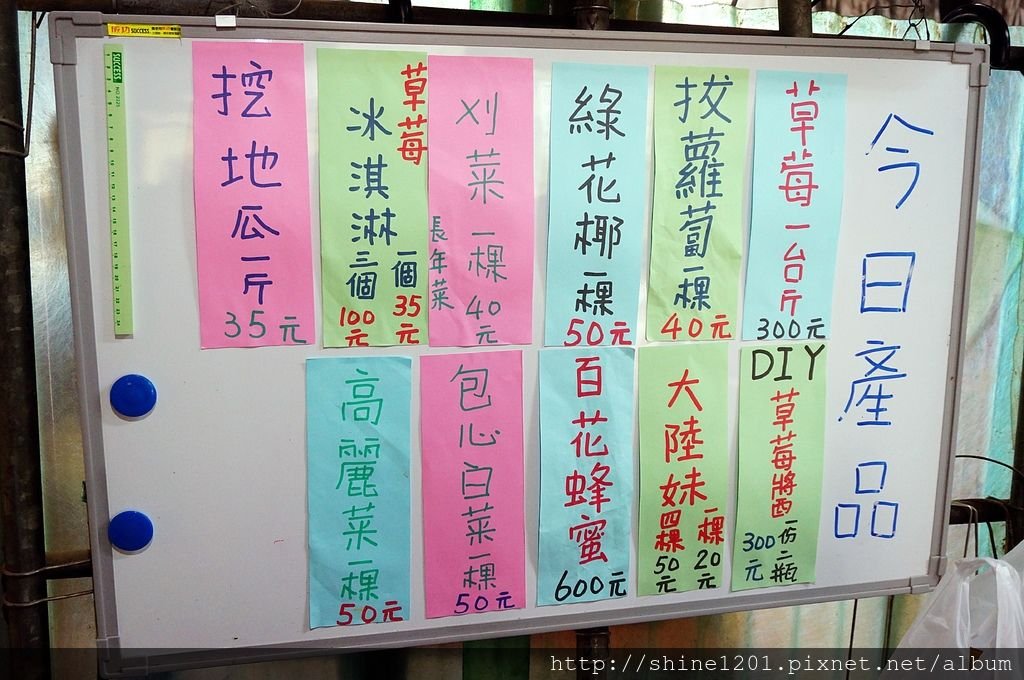 今日產品
草莓一台斤
300元
挍蘿蔔一棵
40元
綠花椰一棵
50元
刈菜一棵
40元
長年菜
草莓
冰淇淋
一個
35元
三個
100元
挖地瓜一斤
35元
DIY
草莓將西
一份二瓶
300元
大陸妹
一棵
20元
四棵
50元
百花蜂蜜
600元
包心白菜一棵
50元
高麗菜一棵
50元
成功 SUCCESS
SUCCESS
http://shine1201.pixnet.net/album